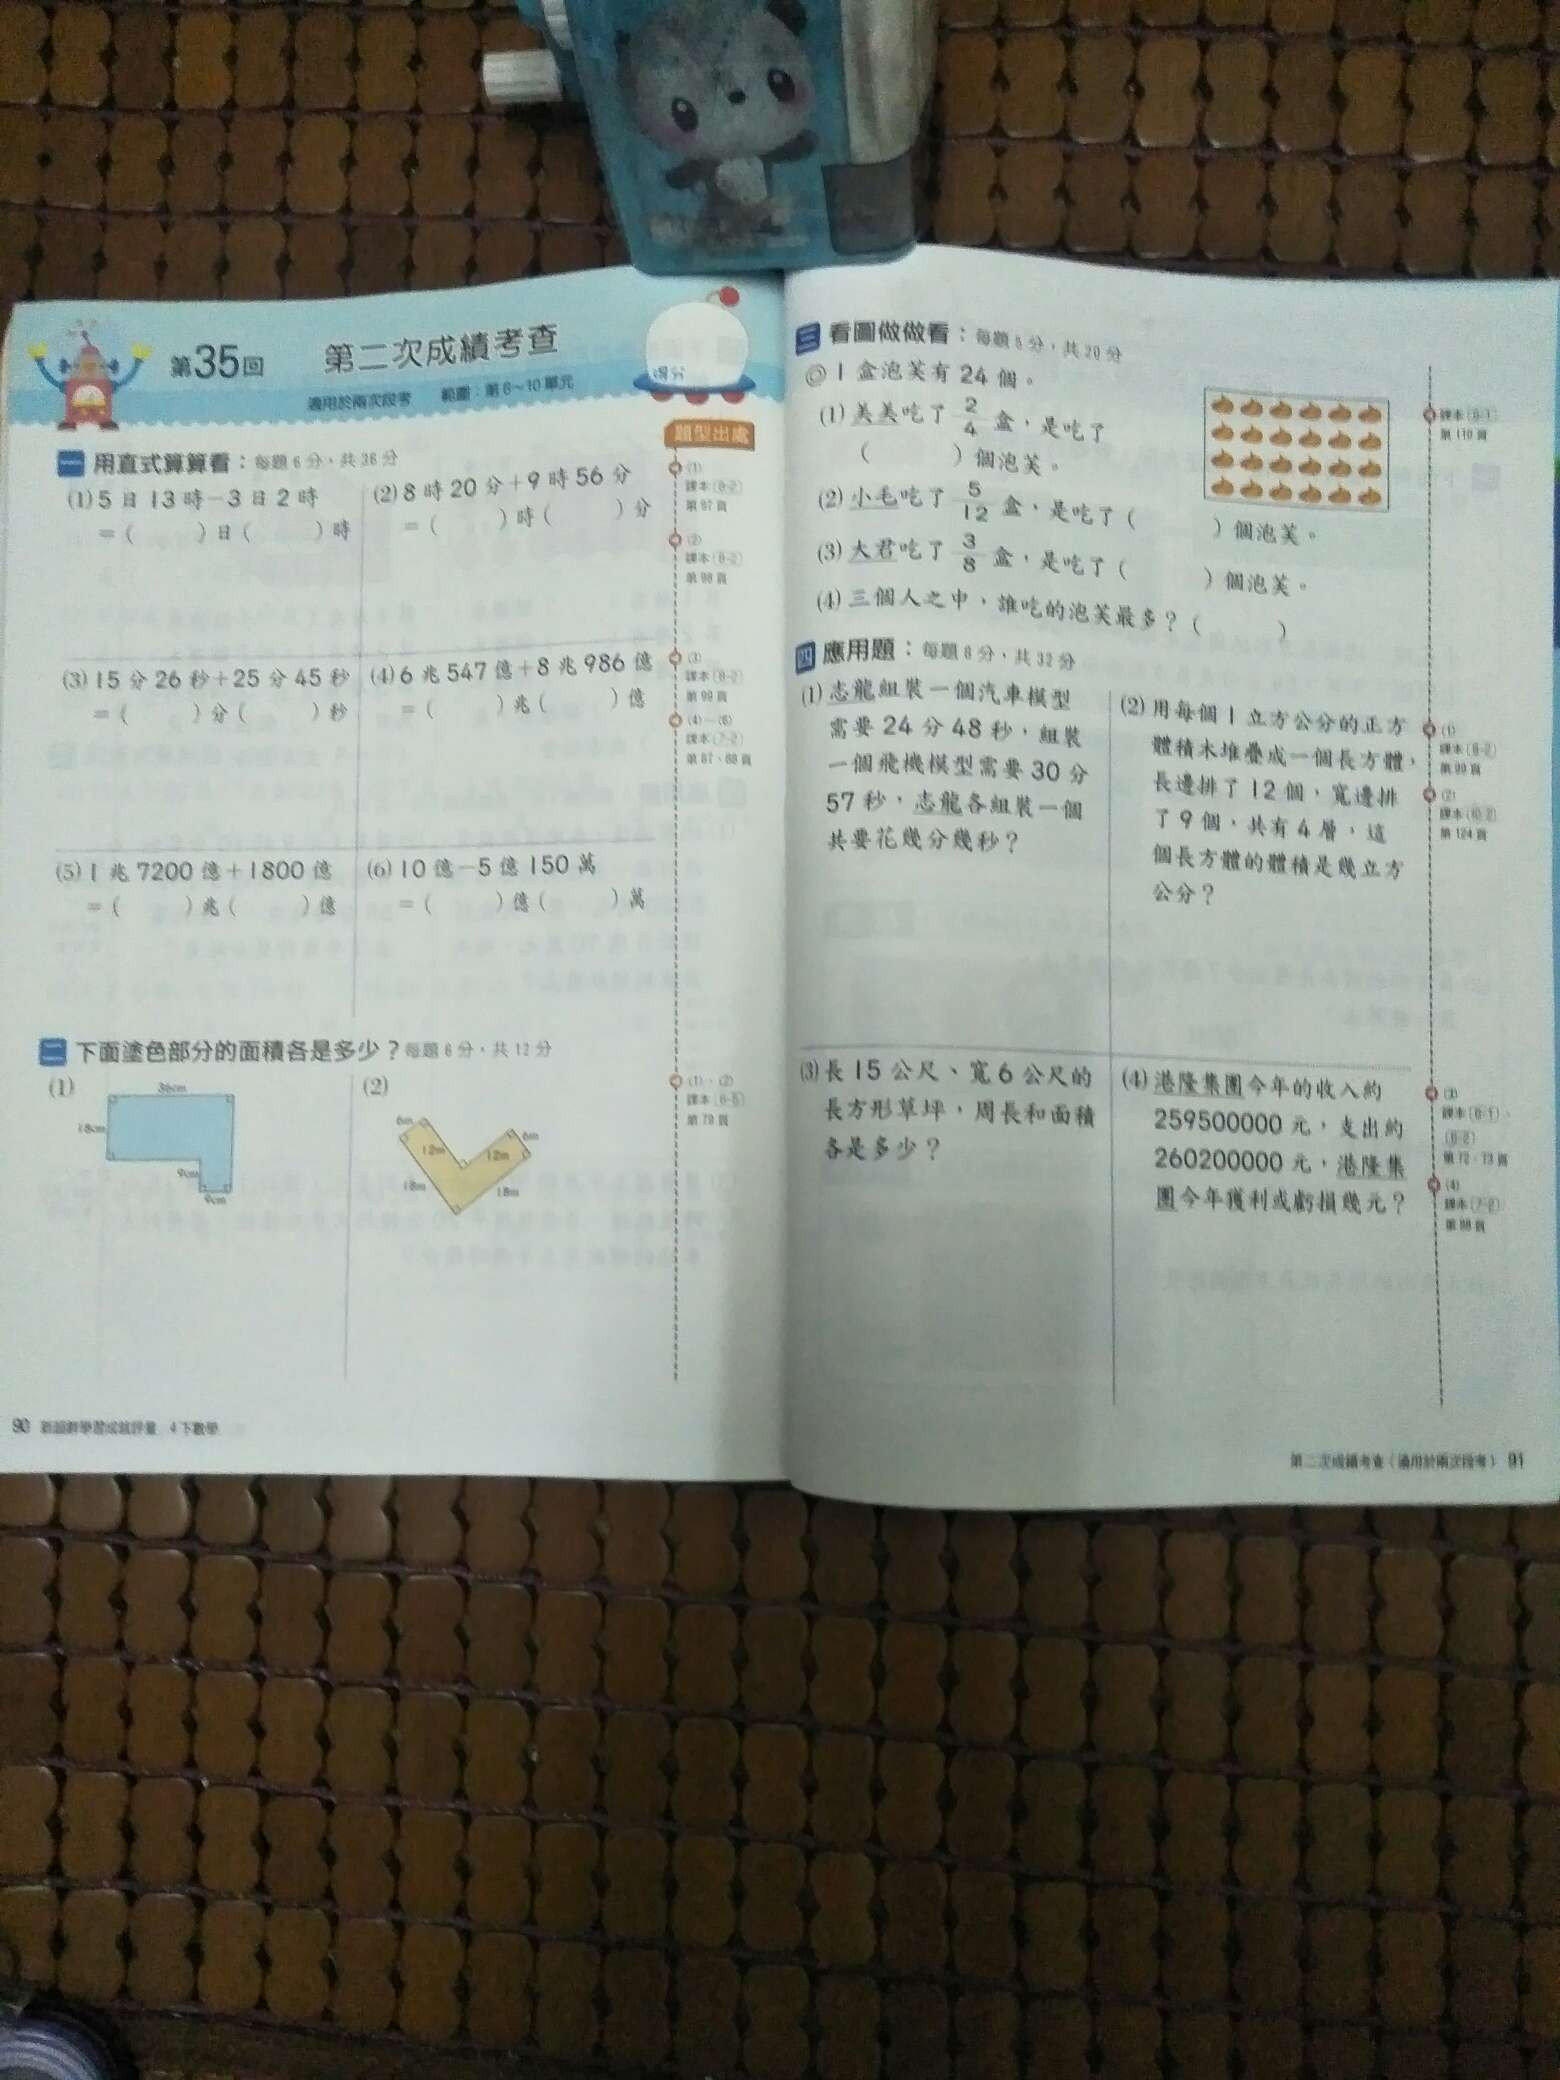 第35回 第二次成績考查
適用於兩次段考 範圍：第6～10單元
得分
題型出處
一 用直式算算看：每題6分，共36分
(1) 5日13時－3日2時
＝( )日( )時
(2) 8時20分＋9時56分
＝( )時( )分
(3) 15分26秒＋25分45秒
＝( )分( )秒
(4) 6兆547億＋8兆986億
＝( )兆( )億
(5) 1兆7200億＋1800億
＝( )兆( )億
(6) 10億－5億150萬
＝( )億( )萬
(1)
課本(8-2)
第97頁
(2)
課本(8-2)
第98頁
(3)
課本(8-2)
第99頁
(4)～(6)
課本(7-2)
第87、88頁
二 下面塗色部分的面積各是多少？每題6分，共12分
(1)
36cm
18cm
9cm
9cm
(2)
6m
12m
12m
6m
18m
18m
(1)、(2)
課本(6-5)
第79頁
90 4下數學
三 看圖做做看：每題5分，共20分
◎1盒泡芙有24個。
(1) 美美吃了2/4盒，是吃了
( )個泡芙。
(2) 小毛吃了5/12盒，是吃了( )個泡芙。
(3) 大君吃了3/8盒，是吃了( )個泡芙。
(4) 三個人之中，誰吃的泡芙最多？( )
課本(9-1)
第110頁
四 應用題：每題8分，共32分
(1) 志龍組裝一個汽車模型
需要24分48秒，組裝
一個飛機模型需要30分
57秒，志龍各組裝一個
共要花幾分幾秒？
(2) 用每個1立方公分的正方
體積木堆疊成一個長方體，
長邊排了12個，寬邊排
了9個，共有4層，這
個長方體的體積是幾立方
公分？
(1)
課本(8-2)
第99頁
(2)
課本(10-2)
第124頁
(3) 長15公尺、寬6公尺的
長方形草坪，周長和面積
各是多少？
(4) 港隆集團今年的收入約
259500000元，支出約
260200000元，港隆集
團今年獲利或虧損幾元？
(3)
課本(6-1)、
(6-2)
第72、73頁
(4)
課本(7-2)
第88頁
第二次成績考查（適用於兩次段考） 91